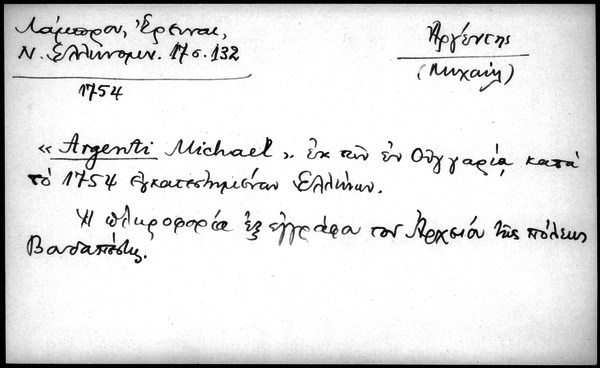 Λάμπρου, Ἔρευναι,
Ν. Ἑλληνομν. 17 σ. 132
1754
Ἀργέντης
(Μιχαὴλ)
« Argenti Michael ». ἐκ τῶν ἐν Οὑγγαρίᾳ κατὰ
τὸ 1754 ἐγκατεστημένων Ἑλλήνων.
Ἡ πληροφορία ἐξ ἐγγράφου τοῦ Ἀρχείου τῆς πόλεως
Βουδαπέστης.